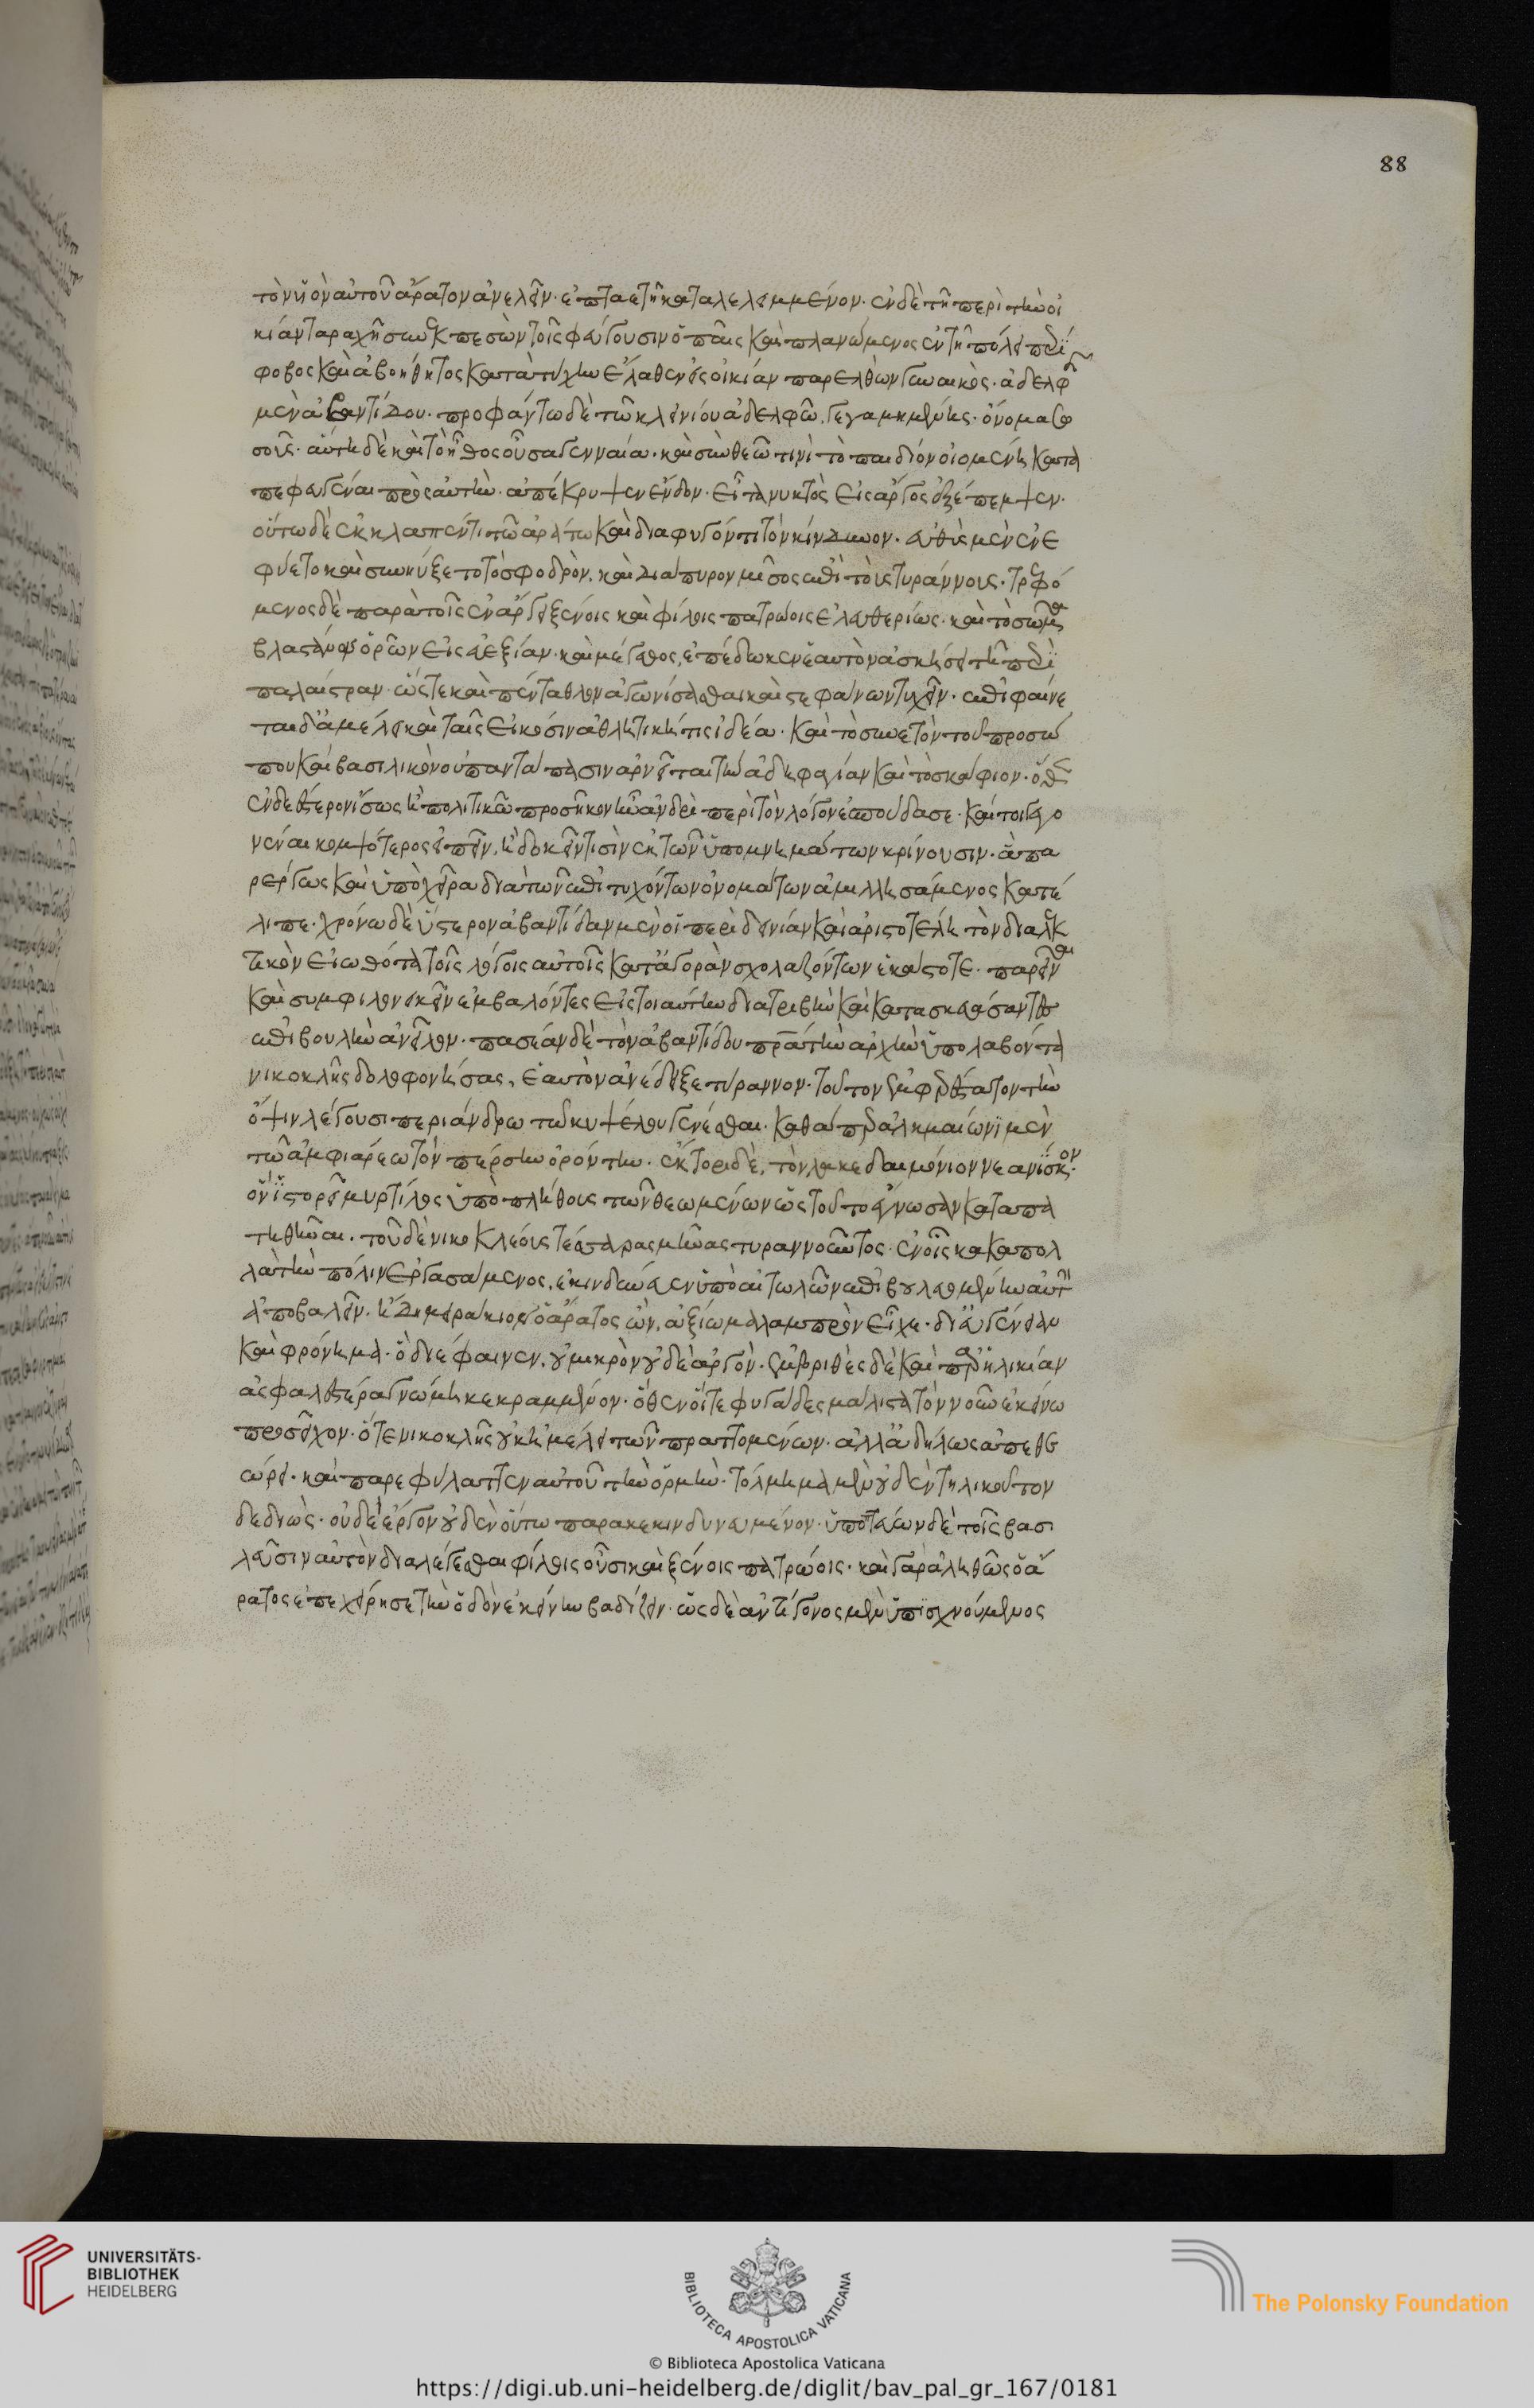 88
τὸν υἱὸν αὐτοῦ ἄρατον ἀνελεῖν· ἑπταετῆ καταλελειμμένον. ἐν δὲ τῆ περὶ τὴν οἰ
κίαν ταραχῆ συνεκπεσὼν τοῖς φεύγουσιν ὁ παῖς καὶ πλανώμενος ἐν τῆ πόλει περί
φοβος καὶ ἀβοήθητος κατὰ τύχην ἔλαθεν εἰς οἰκίαν παρελθὼν γυναικὸς· ἀδελφῆς
μὲν ἀβαντίδου. προφάντω δὲ τῶ κλεινίου ἀδελφῶ, γεγαμημένης· ὄνομα σω
σοῦς. αὕτη δὲ καὶ τὸ ἦθος οὖσα γενναία. καὶ σὺν θεῶ τινὶ τὸ παιδίον οἰομένη κατα
πεφευγέναι πρὸς αὐτὴν. ἀπέκρυψεν ἔνδον. εἶτα νυκτὸς εἰς ἄργος ἐξέπεμψεν.
οὕτω δὲ ἐκκλαπέντι τῶ ἀράτω καὶ διαφυγόντι τὸν κίνδυνον. εὐθὺς μὲν ἐνε
φύετο καὶ συνηύξετο τὸ σφοδρὸν, καὶ διάπυρον μῖσος ἐπὶ τοὺς τυράννους. τρεφό
μενος δὲ παρὰ τοῖς ἐν ἄργει ξένοις καὶ φίλοις πατρώοις ἐλευθερίως. καὶ τὸ σῶμα
βλαστάνον ὁρῶν εἰς εὐεξίαν. καὶ μέγεθος, ἐπέδωκεν ἑαυτὸν ἀσκήσει τῆ περὶ
παλαίστραν. ὥστε καὶ πένταθλον ἀγωνίσασθαι καὶ στεφάνων τυχεῖν. ἐπιφαίνε
ται δ' ἀμέλει καὶ ταῖς εἰκόσιν ἀθλητική τις ἰδέα. καὶ τὸ συνετὸν τοῦ προσώ
που καὶ βασιλικὸν οὐ παντάπασιν ἀρνεῖται τὴν ἀδηφαγίαν καὶ τὸ σκαφίον. ὅθεν
ἐνδεέστερον ἴσως ἢ πολιτικῶ προσῆκον ἦν ἀνδρὶ περὶ τὸν λόγον ἐσπούδασε. καίτοι γεγο
νέναι κομψότερος εἰπεῖν, ἢ δοκεῖν τισὶν ἐκ τῶν ὑπομνημάτων κρίνουσιν. ἃ πα
ρέργως καὶ ὑπὸ χεῖρα διὰ τῶν ἐπιτυχόντων ὀνομάτων ἁμιλλησάμενος κατέ
λιπε. χρόνω δὲ ὕστερον ἀβαντίδαν μὲν οἱ περὶ δεινίαν καὶ ἀριστοτέλη τὸν διαλεκ
τικὸν εἰωθότα τοῖς λόγοις αὐτοῖς κατ' ἀγορὰν σχολαζόντων ἑκάστοτε. παρεῖναι
καὶ συμφιλονεικεῖν ἐμβαλόντες εἰς τοιαύτην διατριβὴν καὶ κατασκευάσαντες
ἐπιβουλὴν ἀνεῖλον. πασέαν δὲ τὸν ἀβαντίδου πατέρα τὴν ἀρχὴν ὑπολαβόντα
νικοκλῆς δολοφονήσας, ἑαυτὸν ἀνέδειξε τύραννον. τοῦτον ἐμφερέστατον τὴν
ὄψιν λέγουσι περιάνδρω τῶ κυψέλου γενέσθαι. καθάπερ ἀλκμαίωνι μὲν
τῶ ἀμφιάρεω τὸν πέρσην ὀρόντην. ἕκτορι δὲ, τὸν λακεδαιμόνιον νεανίσκον.
ὃν ἱστορεῖ μυρτίλος ὑπὸ πλήθους τῶν θεωμένων ὡς τοῦτο ἔγνωσαν καταπα
τηθῆναι. τοῦ δὲ νικοκλέους τέσσαρας μῆνας τυραννοῦντος. ἐν οἷς κακὰ πολ
λὰ τὴν πόλιν ἐργασάμενος, ἐκινδύνευσεν ὑπὸ αἰτωλῶν ἐπιβουλευομένην αὐτὴν
ἀποβαλεῖν. ἤδη μειράκιον ὁ ἄρατος ὢν, ἀξίωμα λαμπρὸν εἶχε. δι' εὐγένειαν
καὶ φρόνημα. ὃ διέφαινεν, οὐ μικρὸν οὐδὲ ἀργὸν. ἐμβριθὲς δὲ καὶ παρ' ἡλικίαν
ἀσφαλεστέρα γνώμη κεκραμμένον. ὅθεν οἵ τε φυγάδες μάλιστα τὸν νοῦν ἐκείνω
προσεῖχον. ὅ τε νικοκλῆς οὐκ ἠμέλει τῶν πραττομένων. ἀλλ' ἀδήλως ἀπεθε
ώρει. καὶ παρεφύλαττεν αὐτοῦ τὴν ὁρμὴν. τόλμημα μὲν οὐδὲν τηλικοῦτον
δεδιὼς. οὐδὲ ἔργον οὐδὲν οὕτω παρακεκινδυνευμένον. ὑποπτεύων δὲ τοῖς βασι
λεῦσιν αὐτὸν διαλέγεσθαι φίλοις οὖσι καὶ ξένοις πατρώοις. καὶ γὰρ ἀληθῶς ὁ ἄ
ρατος ἐπεχείρησε τὴν ὁδὸν ἐκείνην βαδίζειν. ὡς δὲ ἀντίγονος μὲν ὑπισχνούμενος
UNIVERSITÄTS-
BIBLIOTHEK
HEIDELBERG
BIBLIOTECA APOSTOLICA VATICANA
The Polonsky Foundation
© Biblioteca Apostolica Vaticana
https://digi.ub.uni-heidelberg.de/diglit/bav_pal_gr_167/0181